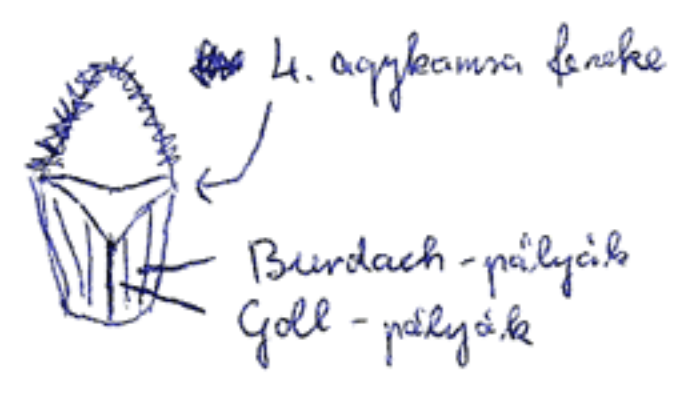 4. agykamra feneke
Burdach-pályák
Goll-pályák